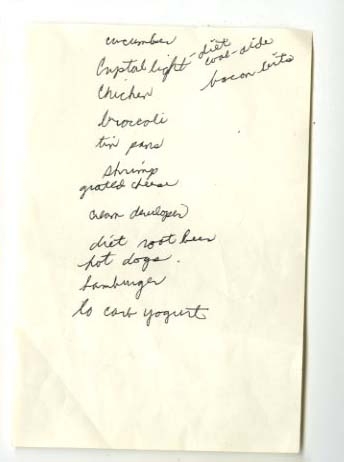 cucumber
Crystal light - diet
cool-aide
bacon bits
Chicken
broccoli
tin pans
shrimp
grated cheese
cream developer
diet root beer
hot dogs.
hamburger
lo carb yogurt